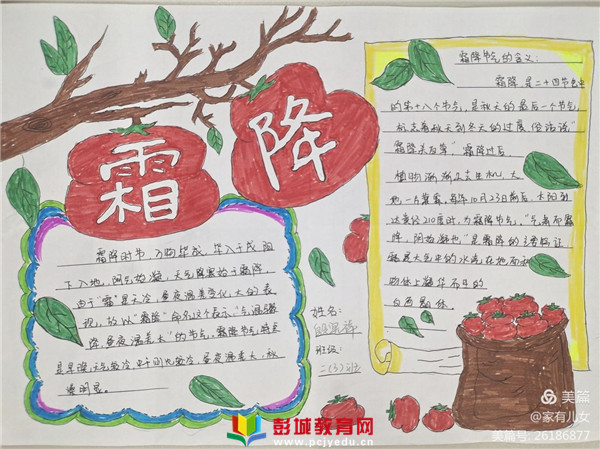 霜
降
霜降时节,万物毕成,毕入于戌,阳
下入地,阴气始凝,天气渐寒始于霜降,
由于“霜”是天冷、昼夜温差变化大的表
现,故以“霜降”命名这个表示“气温骤
降,昼夜温差大”的节气,霜降节气特点
是早晚天气较冷、中午则比较热,昼夜温差大,秋
燥明显。
姓名:
班级:
二(3)班
霜降节气的含义:
霜降是二十四节气
的第十八个节气,是秋天的最后一个节气,
秋天到冬天的过度
霜降过后
植物渐渐失去生机,大
地一片萧索。每年10月23日前后,太阳到
达黄经210度时,为霜降节气。“气肃而霜
降,阴始凝也”
是大气中的水汽在地面和
物体上凝华
白色
彭城教育网
www.pcjyedu.cn
美篇
@家有儿女
美篇号: 26186877